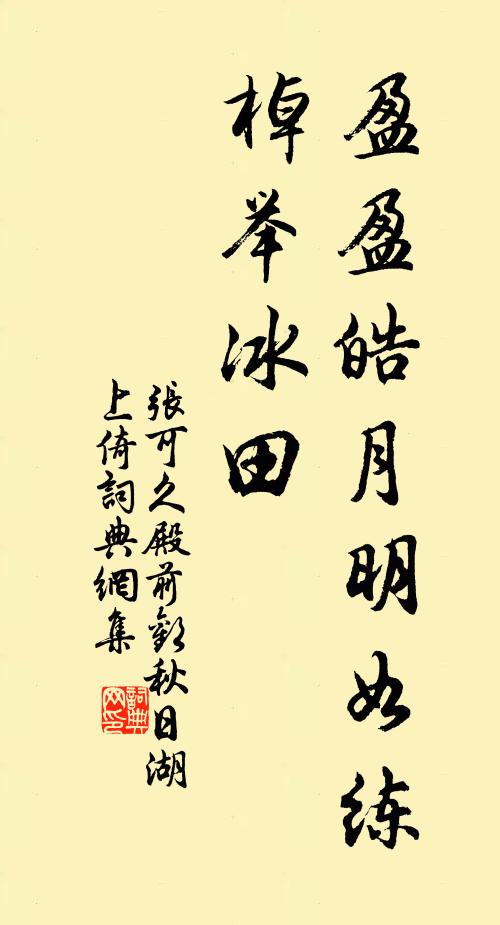 盈盈皓月明如练
棹举冰田
張可久殿前歡秋日湖
上倚詞典網集
詞典网印